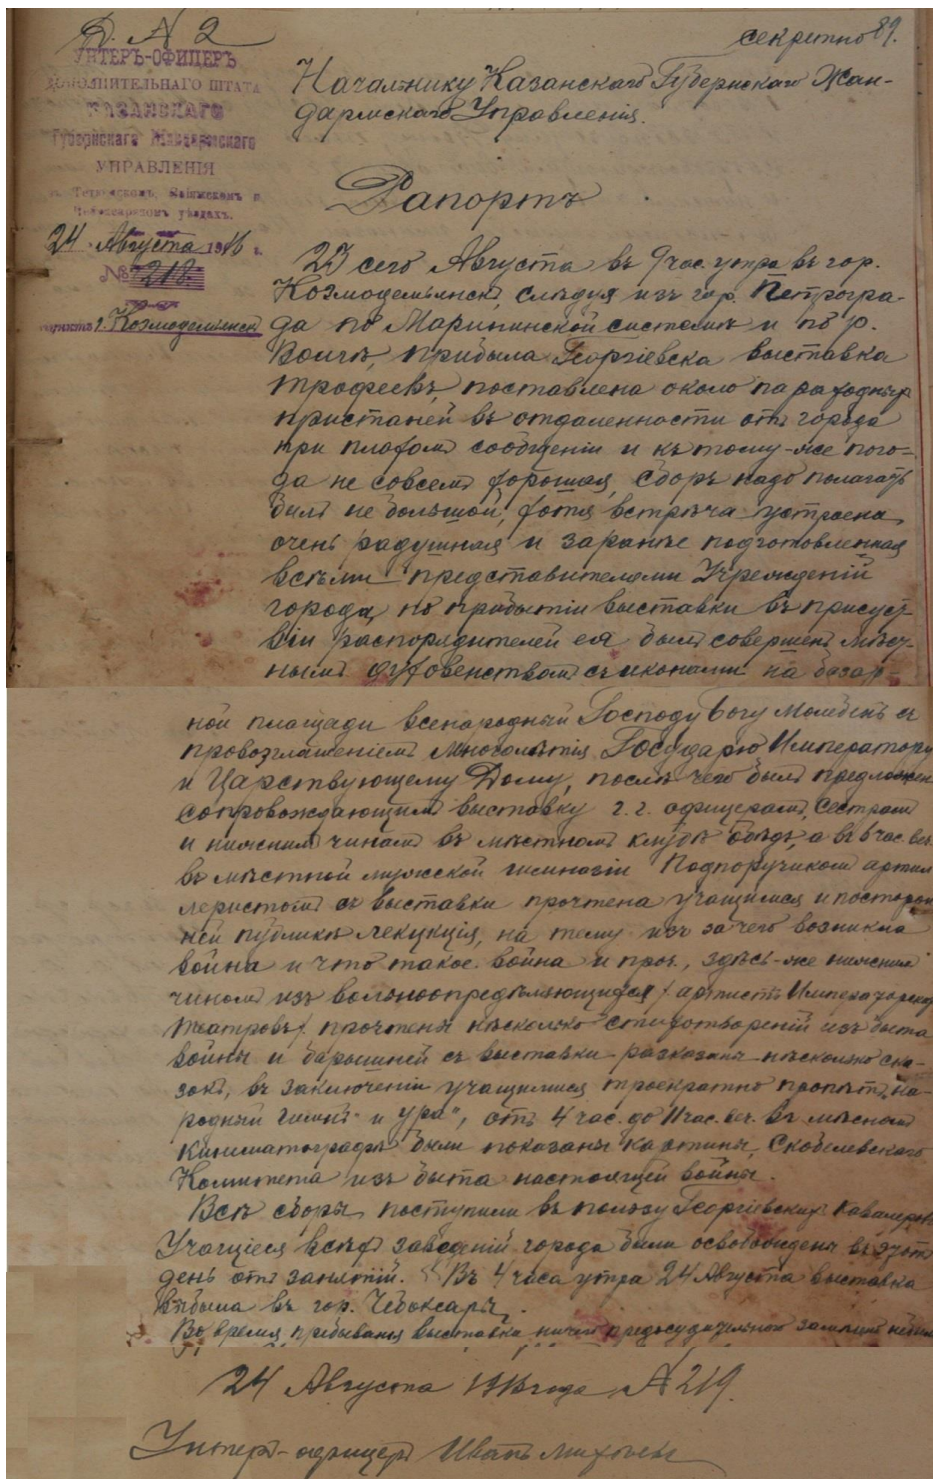 Д. № 2
секретно 89.
УНТЕРЪ-ОФИЦЕРЪ
ДОПОЛНИТЕЛЬНАГО ШТАТА
КАЗАНСКАГО
Губернскаго Жандармскаго
УПРАВЛЕНІЯ
въ Тетюшскомъ, Свіяжскомъ и
Чебоксарскомъ уѣздахъ.
24 Августа 1916 г.
№ 218
г. Козмодемьянскъ
Начальнику Казанскаго Губернскаго Жан-
дармскаго Управленія.
Рапортъ
23 сего Августа въ 9 час. утра въ гор.
Козмодемьянскъ, слѣдуя изъ гор. Петрогра-
да по Маріинской системѣ и по р.
Волгѣ, прибыла Георгіевска выставка
трофеевъ, поставлена около пароходныхъ
пристаней въ отдаленности отъ города
при плохомъ сообщеніи и къ тому-же пого-
да не совсемъ хорошая, сборъ надо полагать
былъ не большой, хотя встрѣча устроена
очень радушная и заранѣе подготовленная
всѣми представителями Учрежденій
города, по прибытіи выставки въ присутст
віи распорядителей ея былъ совершенъ мѣст-
нымъ духовенствомъ съ иконами на базар-
ной площади всенародный Господу Богу молебенъ съ
провозглашеніемъ многолѣтія Государю Императору
и Царствующему Дому, послѣ чего былъ предложен
сопровождающимъ выставку г.г. офицерамъ, сестрамъ
и нижнимъ чинамъ въ мѣстномъ клубѣ обѣдъ, а въ 6 час. веч.
въ мѣстной мужской гимназіи Подпоручикомъ артил
леристомъ съ выставки прочтена учащимся и посторон
ней публикѣ лекцкція, на тему изъ за чего возникла
война и что такое война и проч., здѣсь-же нижнимъ
чиномъ изъ вольноопредѣляющихся / артистъ Императорских
театровъ / прочтены нѣсколько стихотвореній изъ быта
войны и барышней съ выставки разказаны нѣсколько ска-
зокъ, въ заключеніи учащимися троекратно пропѣтъ на-
родный гимнъ и "ура", отъ 4 час. до 11 час. веч. въ мѣсномъ
кинематографѣ были показаны картины Скобелевскаго
Комитета изъ быта настоящей войны.
Всѣ сборы поступили въ пользу Георгіевскихъ кавалеровъ
Учащіеся всѣхъ заведеній города были освобождены въ этотъ
день отъ занятій. Въ 4 часа утра 24 Августа выставка
выбыла въ гор. Чебоксары.
Во время пребыванія выставки ничего предосудительнаго замѣчено небыло
24 Августа 1916 года № 219.
Унтеръ-офицеръ Иванъ